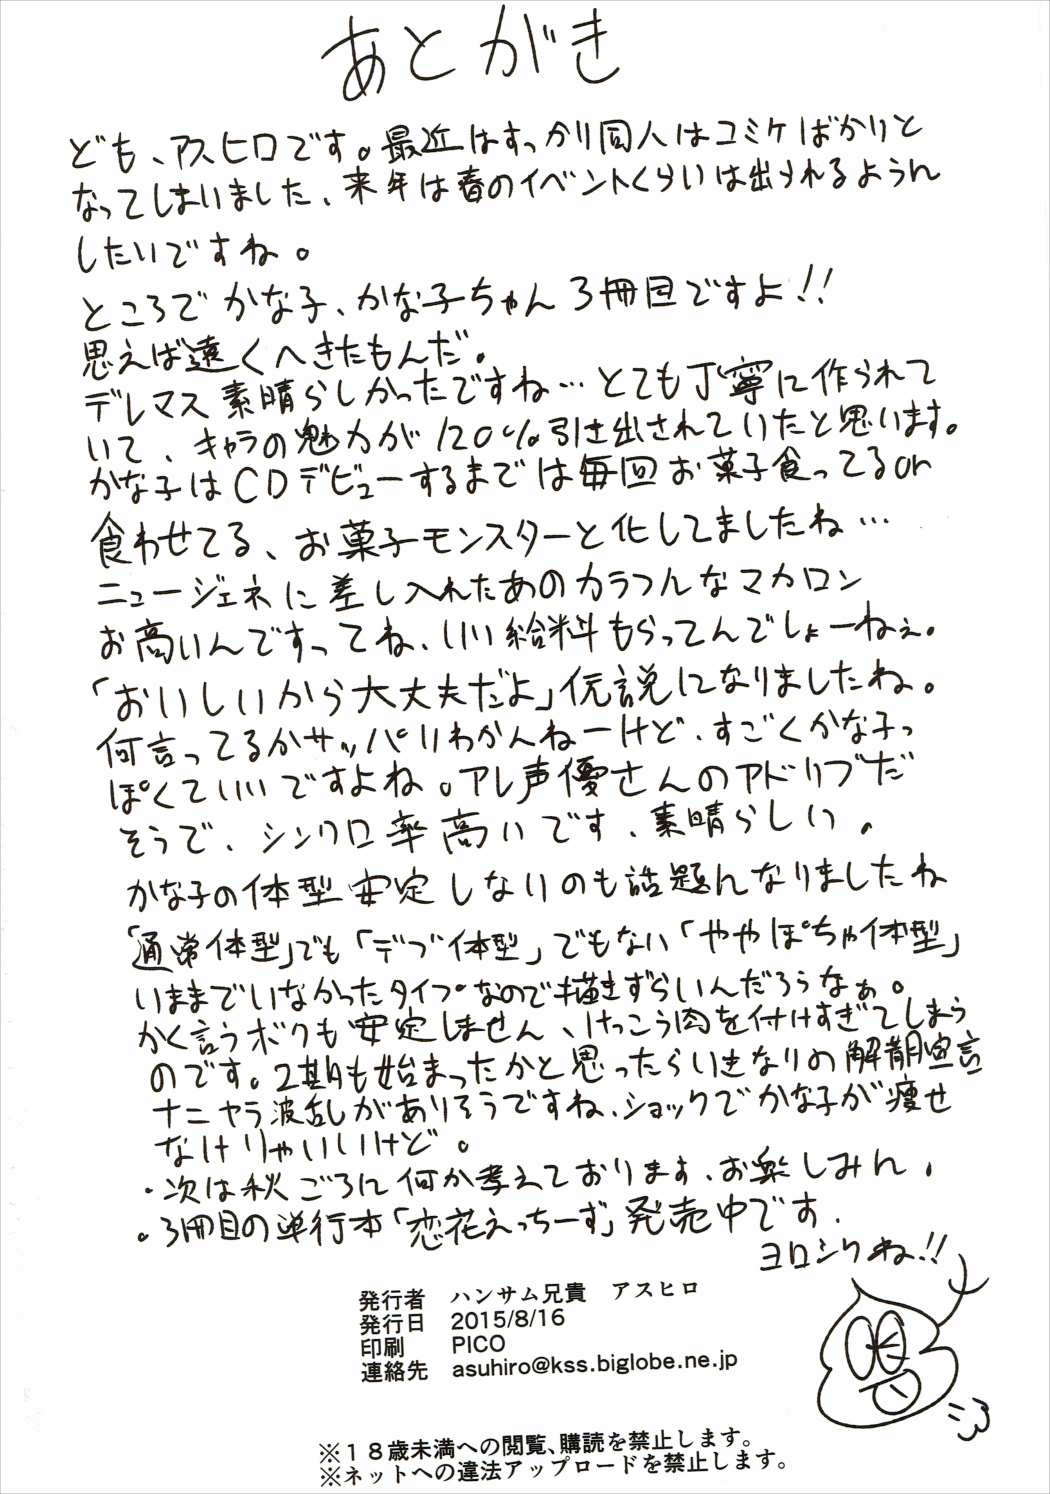 あとがき
ども、アスヒロです。最近はすっかり同人はコミケばかりと
なってしまいました、来年は春のイベントくらいは出られるようん
したいですね。
ところでかな子、かな子ちゃん3冊目ですよ!!
思えば遠くへきたもんだ。
デレマス素晴らしかったですね…とても丁寧に作られて
いて、キャラの魅力が120%引き出されていたと思います。
かな子はCDデビューするまでは毎回お菓子食ってるor
食わせてる、お菓子モンスターと化してましたね…
ニュージェネに差し入れたあのカラフルなマカロン
お高いんですってね、いい給料もらってんでしょーねぇ。
「おいしいから大丈夫だよ」伝説になりましたね。
何言ってるかサッパリわかんねーけど、すごくかな子っ
ぽくていいですよね。アレ声優さんのアドリブだ
そうで、シンクロ率高いです、素晴らしい。
かな子の体型安定しないのも話題んなりましたね
「通常体型」でも「デブ体型」でもない「ややぽちゃ体型」
いままでいなかったタイプなので描きずらいんだろうなぁ。
かく言うボクも安定しません、けっこう肉を付けすぎてしまう
のです。2期も始まったかと思ったらいきなりの解散宣言
ナニヤラ波乱がありそうですね、ショックでかな子が痩せ
なけりゃいいけど。
・次は秋ごろに何か考えております、お楽しみん。
・3冊目の単行本「恋花えっちーず」発売中です。
ヨロシクね!!
発行者 ハンサム兄貴 アスヒロ
発行日 2015/8/16
印刷 PICO
連絡先 asuhiro@kss.biglobe.ne.jp
※18歳未満への閲覧、購読を禁止します。
※ネットへの違法アップロードを禁止します。